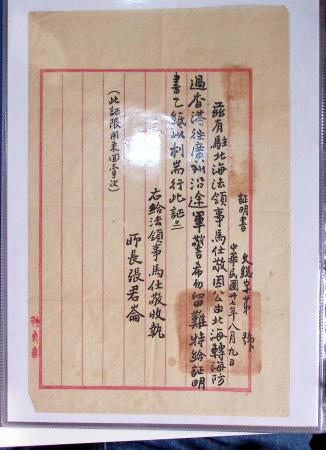 証明書
文 字第 號
中華民國 七年八月九日
茲有駐北海法領事馬仕敬因公由北海轉海防
過香港往廣州沿途軍警希勿留難特給証明
書乙紙以利耑行此証
右給法領事馬仕敬收執
師長張君嵩
(此証限用来回壹次)